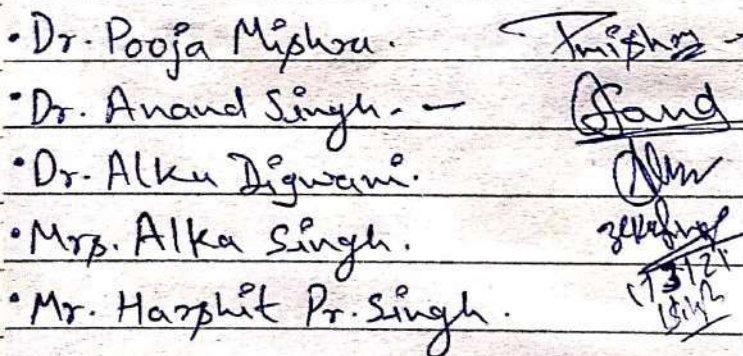 • Dr. Pooja Mishra. Pmishra
• Dr. Anand Singh. - Anand
• Dr. Alka Digwani.
• Mrs. Alka Singh.
• Mr. Harshit Pr. Singh.